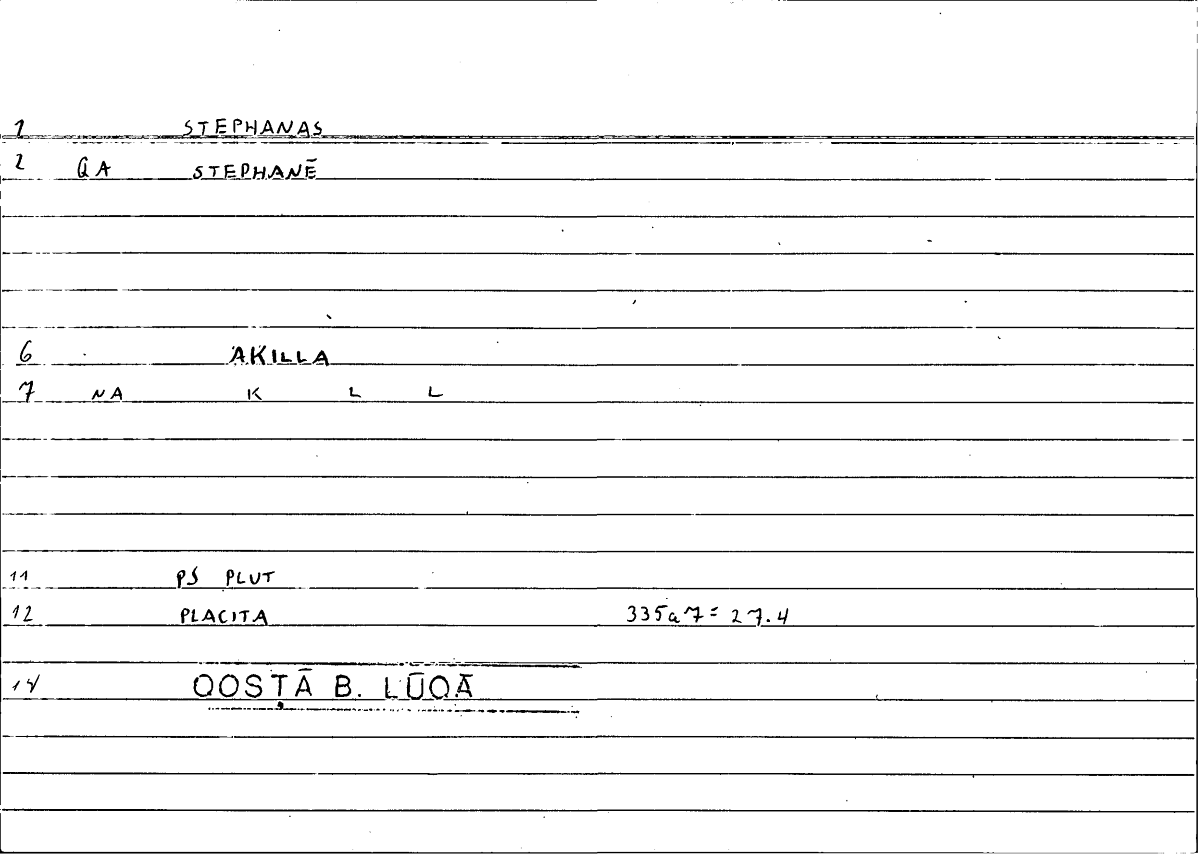 1 STEPHANAS
2 QA STEPHANĒ
6 AKILLA
7 NA K L L
11 PS PLUT
12 PLACITA 335a7 = 27.4
14 QOSṬĀ B. LŪQĀ